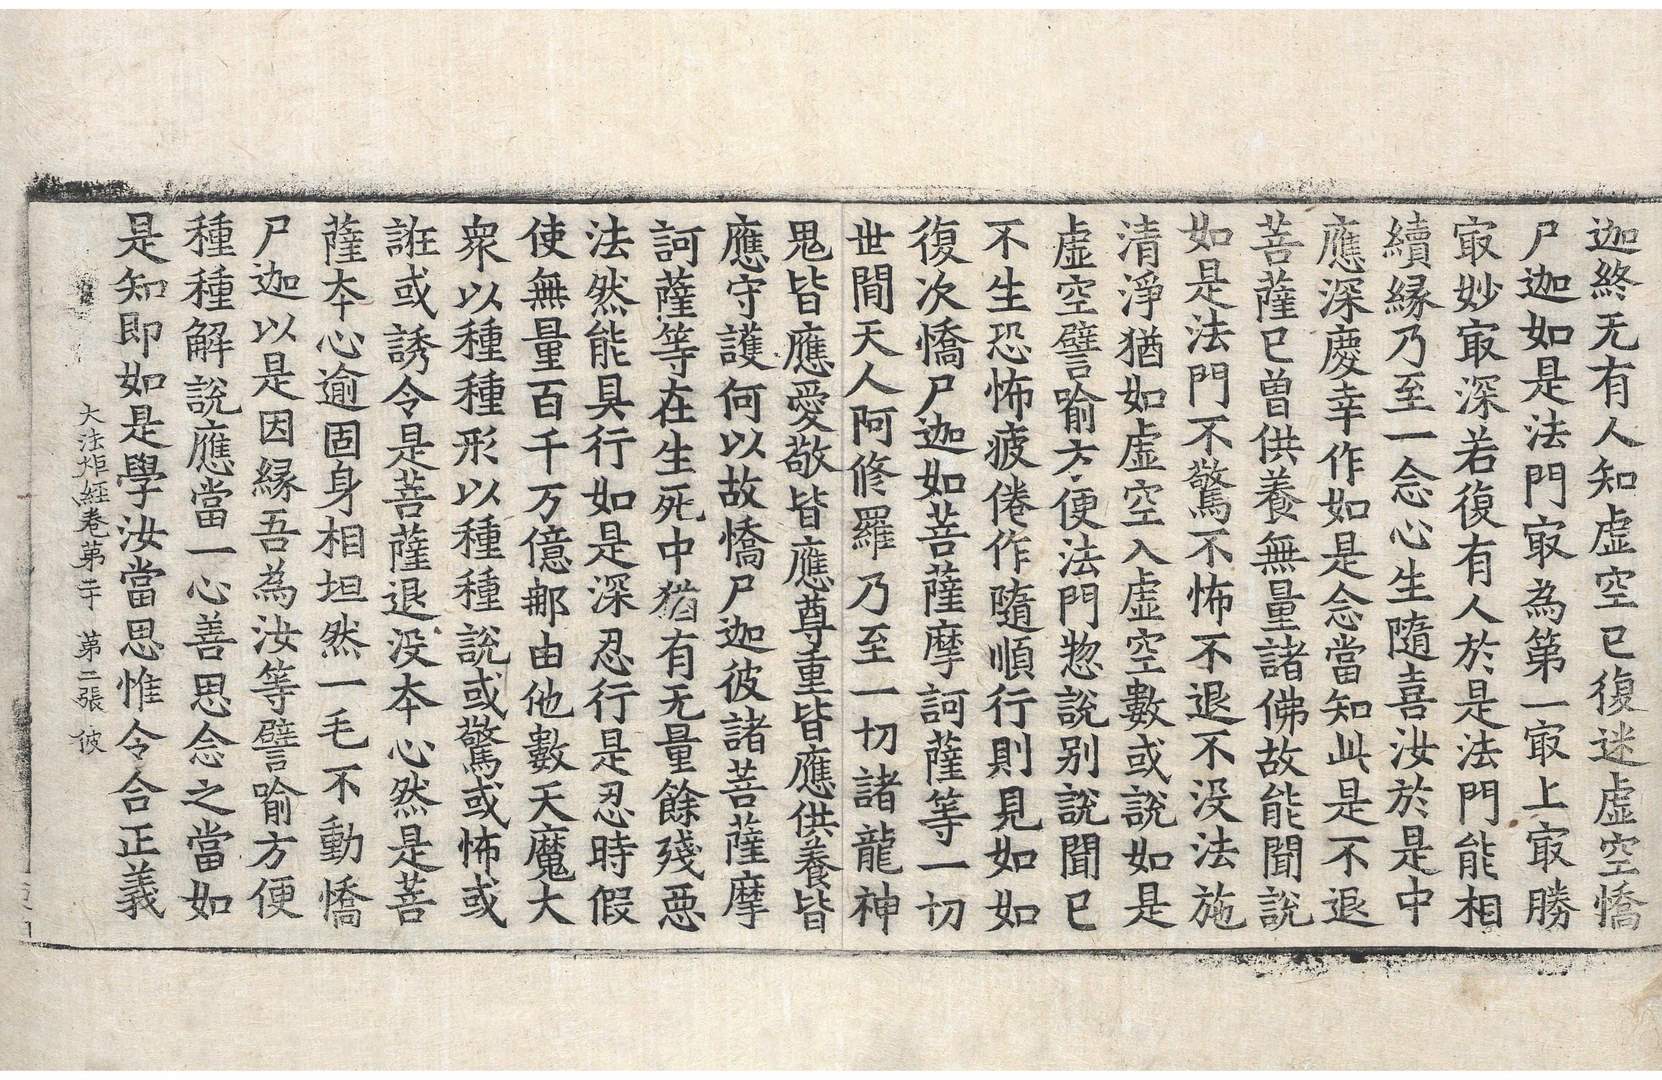 迦終无有人知虛空已復迷虛空憍
尸迦如是法門㝡為第一㝡上㝡勝
㝡妙㝡深若復有人於是法門能相
續緣乃至一念心生隨喜汝於是中
應深慶幸作如是念當知此是不退
菩薩已曾供養無量諸佛故能聞說
如是法門不驚不怖不退不没法施
清淨猶如虛空入虛空數或說如是
虛空譬喻方便法門惣說别說聞已
不生恐怖疲倦作隨順行則見如如
復次憍尸迦如菩薩摩訶薩等一切
世間天人阿修羅乃至一切諸龍神
鬼皆應愛敬皆應尊重皆應供養皆
應守護何以故憍尸迦彼諸菩薩摩
訶薩等在生死中猶有无量餘殘惡
法然能具行如是深忍行是忍時假
使無量百千万億那由他數天魔大
衆以種種形以種種說或驚或怖或
誑或誘令是菩薩退没本心然是菩
薩本心逾固身相坦然一毛不動憍
尸迦以是因緣吾為汝等譬喻方便
種種解說應當一心善思念之當如
是知即如是學汝當思惟令合正義
大法炬經卷第二十 第二張 彼